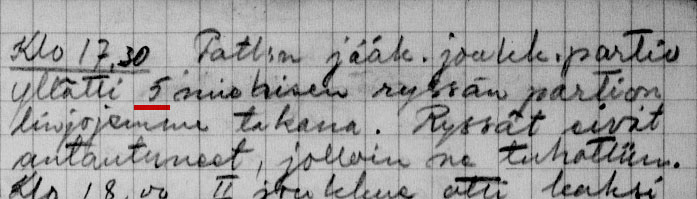 Klo 17.30 Patl:n jääk.joukk.partio
yllätti 5 miehisen ryssän partion
linjojemme takana. Ryssät eivät
antautuneet, jolloin ne tuhottiin.
Klo 18.00 II joukkue otti kaksi